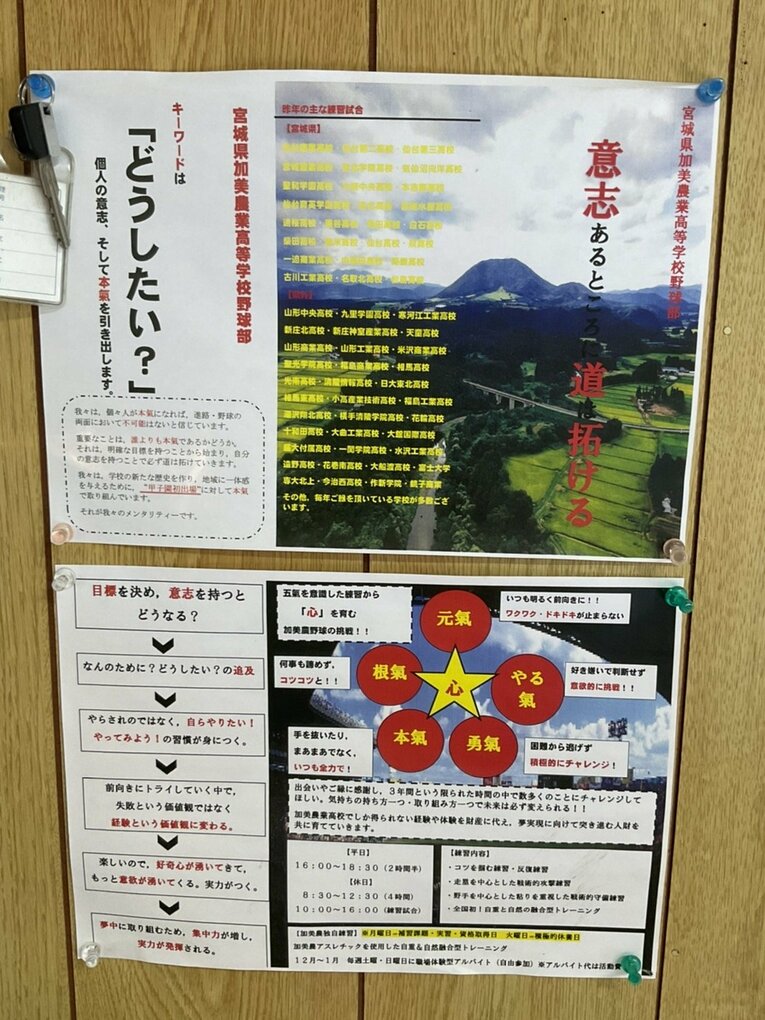 宮城県加美農業高等学校野球部
意志あるところに道は拓ける
昨年の主な練習試合
【宮城県】
仙台第三高校
気仙沼向洋高校
聖和学園高校
白石高校
柴田高校
仙台高校
古川工業高校・名取北高校
【県外】
山形中央高校・九里学園高校・寒河江工業高校
新庄北高校・新庄神室産業高校・天童高校
山形商業高校・山形工業高校・米沢商業高校
聖光学院高校・福島商業高校・相馬高校
光南高校・清陵情報高校・日大東北高校
相馬東高校・小高産業技術高校・福島工業高校
湯沢翔北高校・横手清陵学院高校・花輪高校
十和田高校・大曲工業高校・大館国際高校
一関学院高校・水沢工業高校
遠野高校・花巻南高校・大船渡高校・富士大学
専大北上・今治西高校・作新学院・銚子商業
その他、毎年ご縁を頂いている学校が多数ござ
います。
宮城県加美農業高等学校野球部
キーワードは
「どうしたい？」
個人の意志、そして本氣を引き出します。
我々は、個々人が本氣になれば、進路・野球の
両面において不可能はないと信じています。
重要なことは、誰よりも本氣であるかどうか。
それは、明確な目標を持つことから始まり、自分
の意志を持つことで必ず道は拓けていきます。
我々は、学校の新たな歴史を作り、地域に一体感
を与えるために、“甲子園初出場”に対して本氣
で取り組んでいます。
それが我々のメンタリティーです。
目標を決め，意志を持つと
どうなる？
なんのために？どうしたい？の追及
やらされのではなく，自らやりたい！
やってみよう！の習慣が身につく。
前向きにトライしていく中で，
失敗という価値観ではなく
経験という価値観に変わる。
楽しいので，好奇心が湧いてきて，
もっと意欲が湧いてくる。実力がつく。
夢中に取り組むため，集中力が増し，
実力が発揮される。
五氣を意識した練習から
「心」を育む
加美農野球の挑戦！！
元氣
いつも明るく前向きに！！
ワクワク・ドキドキが止まらない
何事も諦めず，
コツコツと！！
根氣
心
やる
氣
好き嫌いで判断せず
意欲的に挑戦！！
手を抜いたり，
まあまあでなく，
いつも全力で！
本氣
勇氣
困難から逃げず
積極的にチャレンジ！
出会いやご縁に感謝し，３年間という限られた時間の中で数多くのことにチャレンジして
ほしい。気持ちの持ち方一つ・取り組み方一つで未来は必ず変えられる！！
加美農業高校でしか得られない経験や体験を財産に代え，夢実現に向けて突き進む人財を
共に育てていきます。
【平日】
16：00～18：30（2時間半）
【休日】
8：30～12：30（4時間）
10：00～16：00（練習試合）
【練習内容】
・コツを掴む練習・反復練習
・走塁を中心とした戦術的攻撃練習
・野手を中心とした粘りを重視した戦術的守備練習
・全国初！自重と自然の融合型トレーニング
【加美農独自練習】※月曜日＝補習課題・実習・資格取得日　火曜日＝積極的休養日
加美農アスレチックを使用した自重＆自然融合型トレーニング
12月～1月　毎週土曜・日曜日に職場体験型アルバイト（自由参加）※アルバイト代は活動費